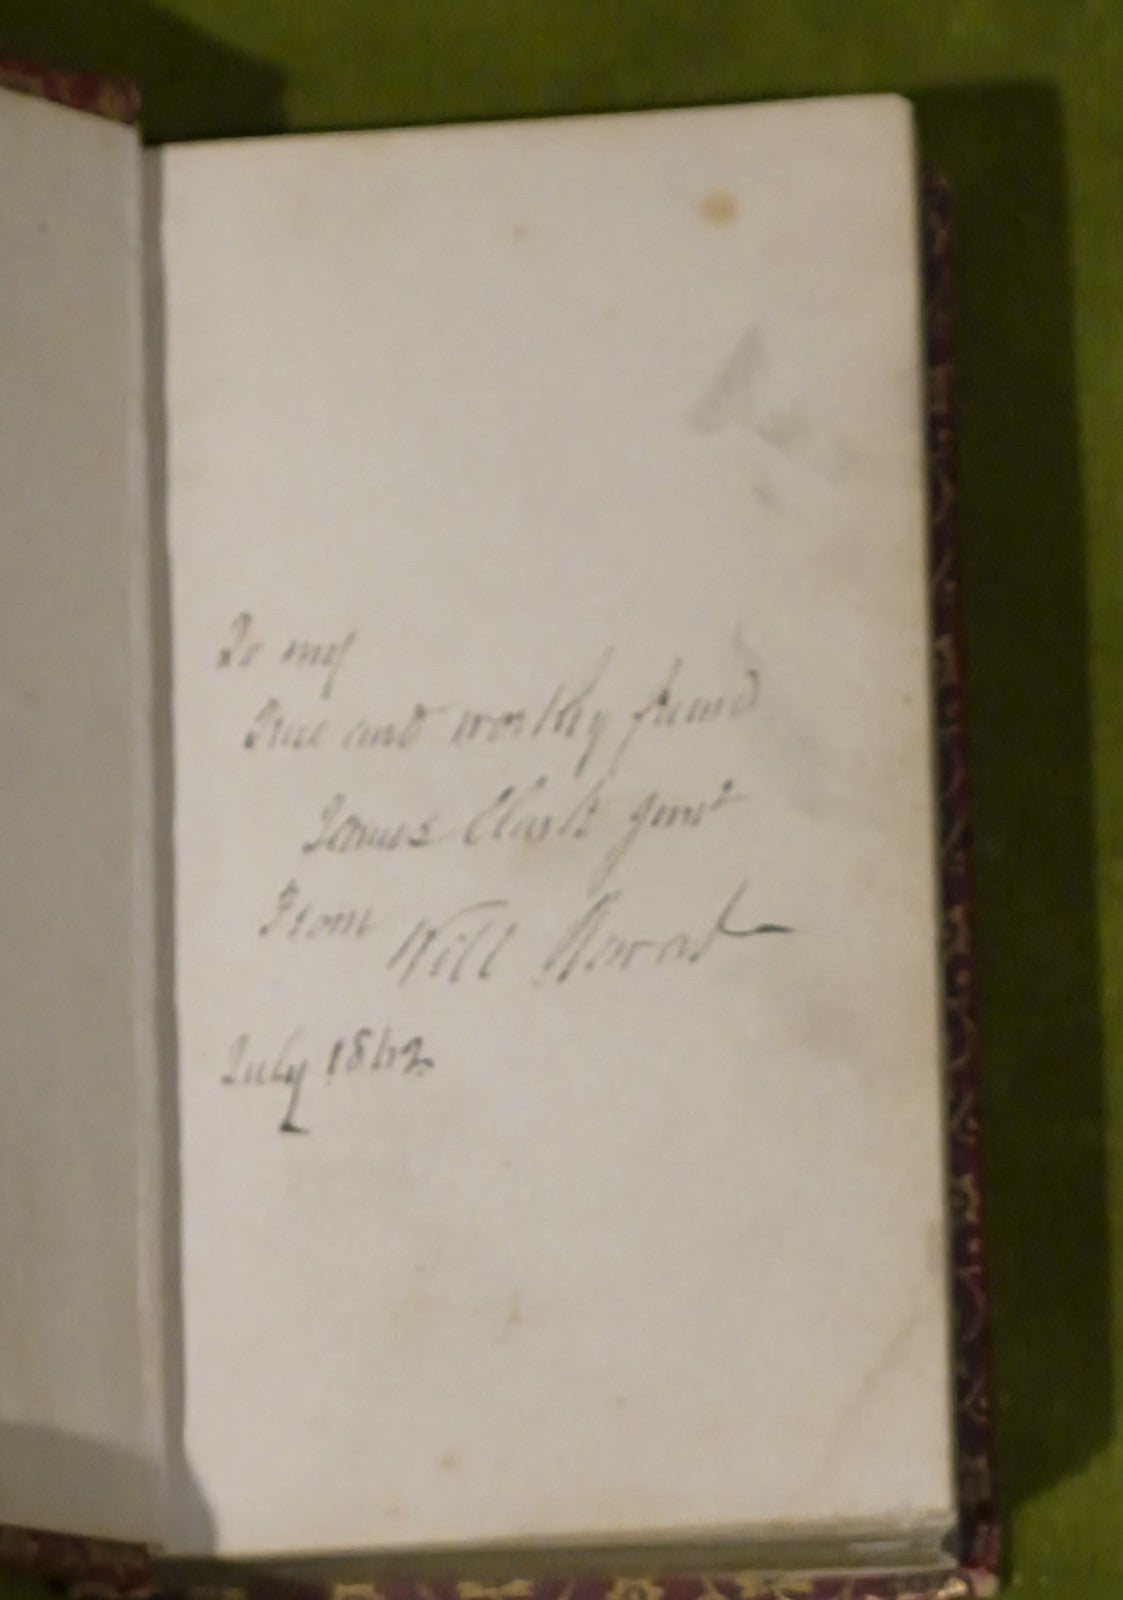 To my
True and worthy friend
James Clark Junr
From Will
July 1842